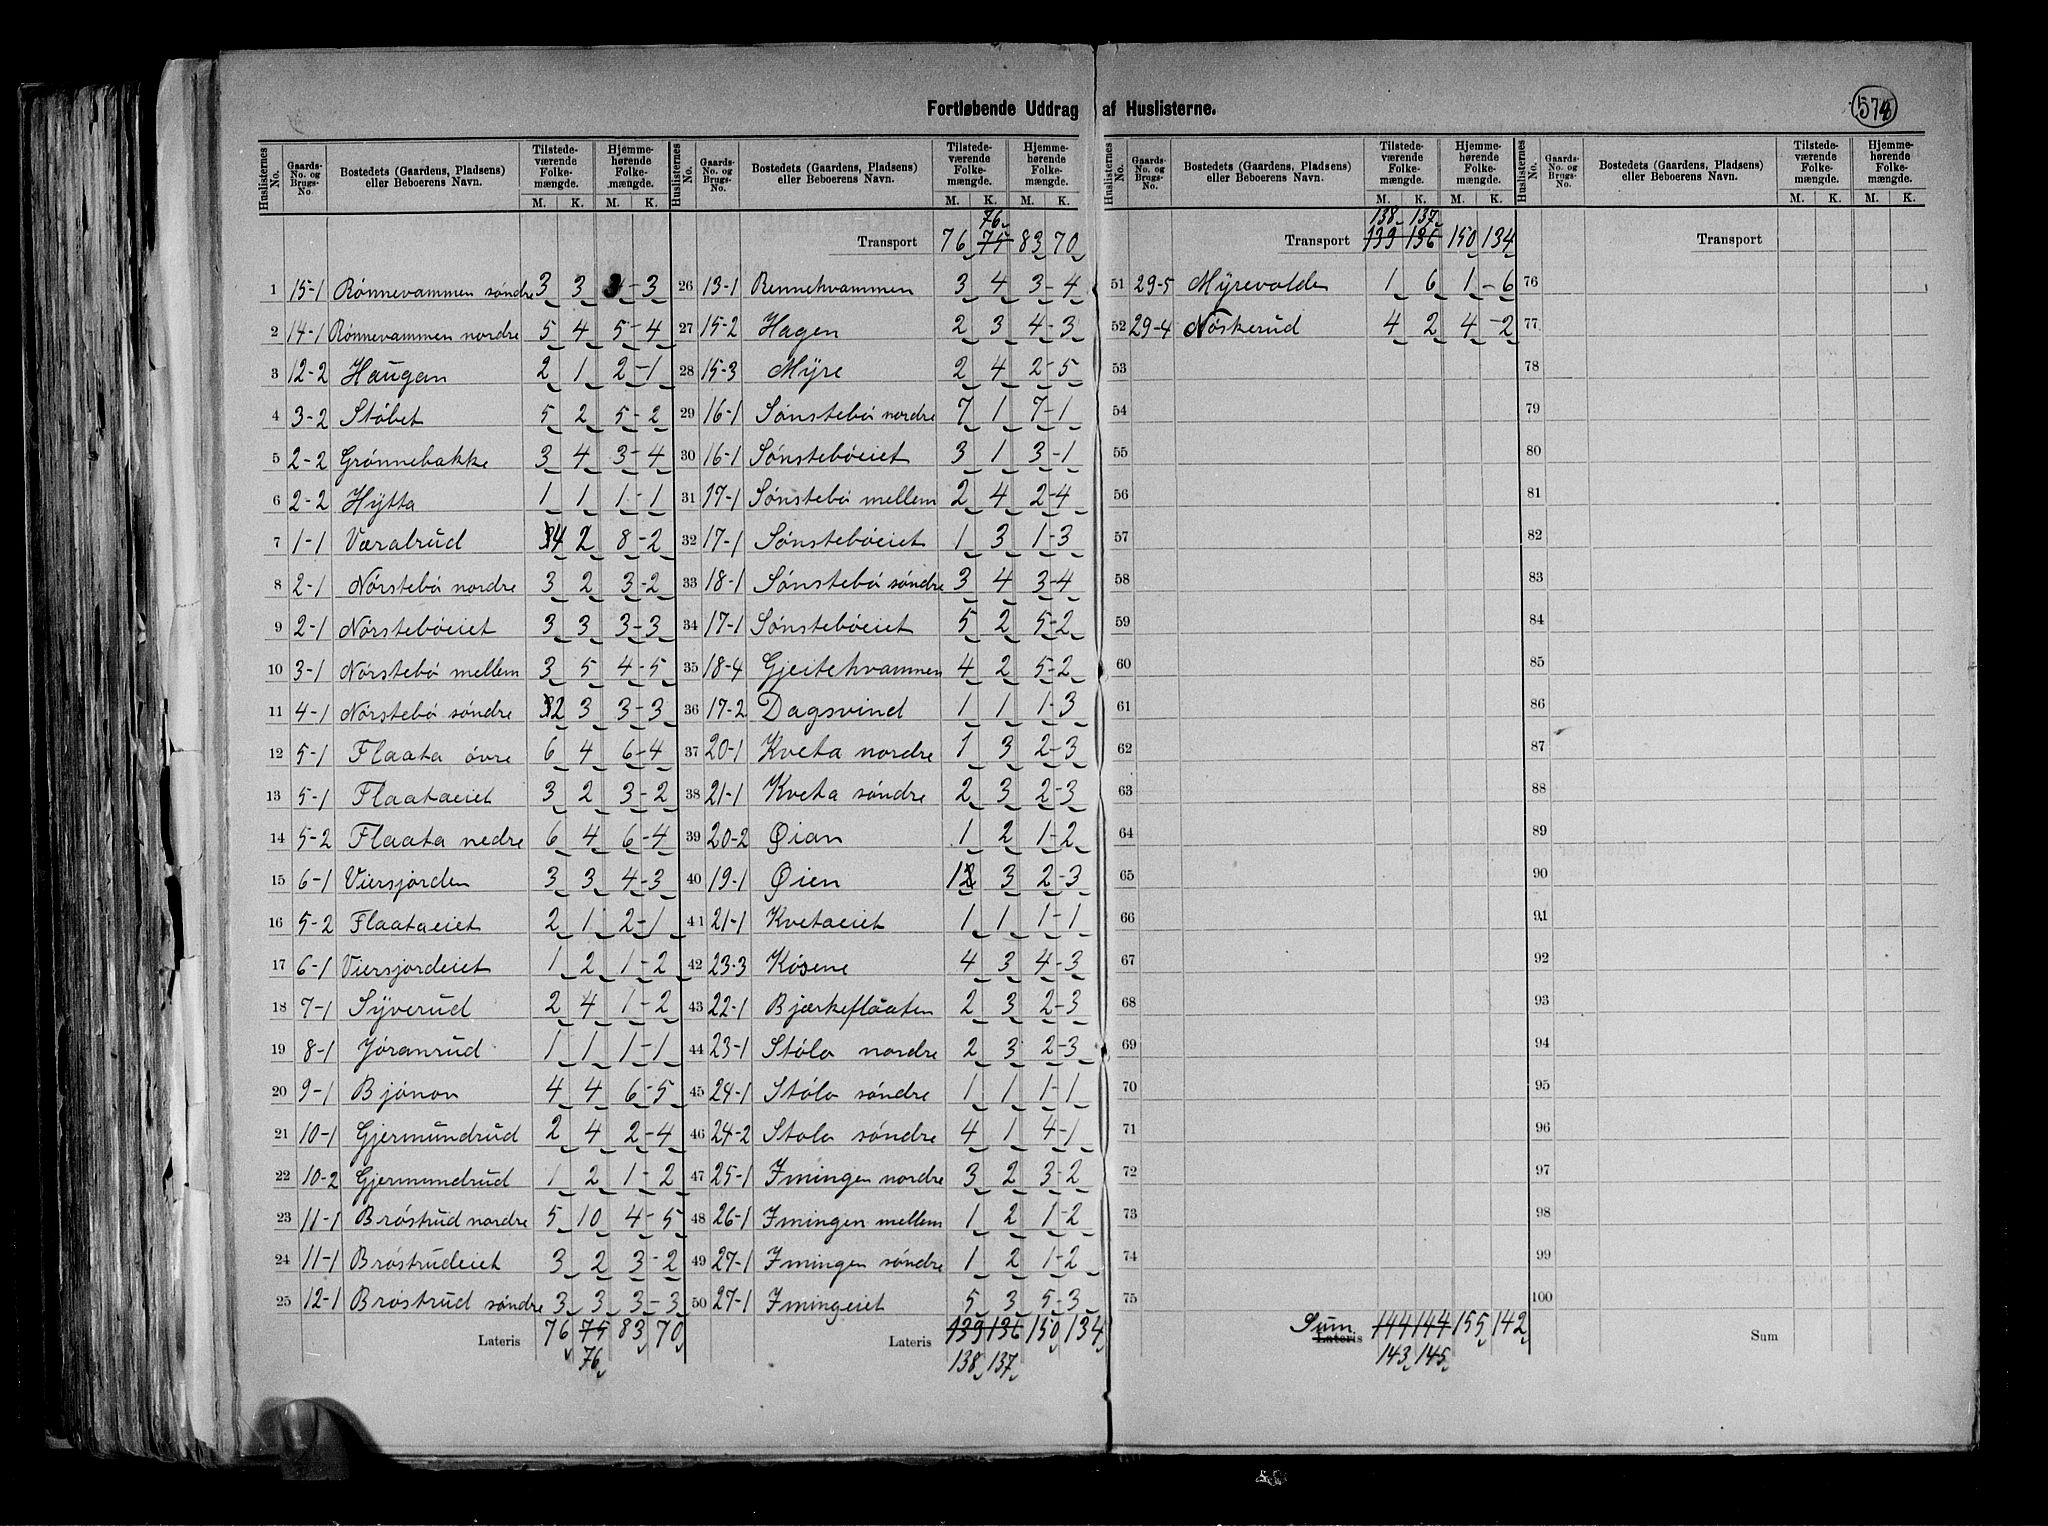 Fortløbende Uddrag af Huslisterne.
574
Huslisternes No. Gaards-No. og Brugs-No. Bostedets (Gaardens, Pladsens) eller Beboerens Navn. Tilstedeværende Folkemængde. M. K. Hjemmehørende Folkemængde. M. K.
1 15-1 Rønnevammen søndre 3 3 3-3
2 14-1 Rønnevammen nordre 5 4 5-4
3 12-2 Haugan 2 1 2-1
4 3-2 Støbet 5 2 5-2
5 2-2 Grønnebakke 3 4 3-4
6 2-2 Hytta 1 1 1-1
7 1-1 Væralrud 4 2 8-2
8 2-1 Nørstebø nordre 3 2 3-2
9 2-1 Nørstebøeiet 3 3 3-3
10 3-1 Nørstebø mellem 3 5 4-5
11 4-1 Nørstebø søndre 2 3 3-3
12 5-1 Flaata øvre 6 4 6-4
13 5-1 Flaataeiet 3 2 3-2
14 5-2 Flaata nedre 6 4 6-4
15 6-1 Viersjorden 3 3 4-3
16 5-2 Flaataeiet 2 1 2-1
17 6-1 Viersjordeiet 1 2 1-2
18 7-1 Syverud 2 4 1-2
19 8-1 Jøranrud 1 1 1-1
20 9-1 Bjønon 4 4 6-5
21 10-1 Gjermundrud 2 4 2-4
22 10-2 Gjermundrud 1 2 1-2
23 11-1 Brøstrud nordre 5 10 4-5
24 11-1 Brøstrudeiet 3 2 3-2
25 12-1 Brøstrud søndre 3 3 3-3
Lateris 76 75 83 70
76
Huslisternes No. Gaards-No. og Brugs-No. Bostedets (Gaardens, Pladsens) eller Beboerens Navn. Tilstedeværende Folkemængde. M. K. Hjemmehørende Folkemængde. M. K.
76
Transport 76 75 83 70
26 13-1 Rennehvammen 3 4 3-4
27 15-2 Hagen 2 3 4-3
28 15-3 Myre 2 4 2-5
29 16-1 Sønstebø nordre 7 1 7-1
30 16-1 Sønstebøeiet 3 1 3-1
31 17-1 Sønstebø mellem 2 4 2-4
32 17-1 Sønstebøeiet 1 3 1-3
33 18-1 Sønstebø søndre 3 4 3-4
34 17-1 Sønstebøeiet 5 2 5-2
35 18-4 Gjeitehvammen 4 2 5-2
36 17-2 Dagsvind 1 1 1-3
37 20-1 Kveta nordre 1 3 2-3
38 21-1 Kveta søndre 2 3 2-3
39 20-2 Øian 1 2 1-2
40 19-1 Øien 1 3 2-3
41 21-1 Kvetaeiet 1 1 1-1
42 23-3 Køsene 4 3 4-3
43 22-1 Bjærkeflaaten 2 3 2-3
44 23-1 Støla nordre 2 3 2-3
45 24-1 Støla søndre 1 1 1-1
46 24-2 Støla søndre 4 1 4-1
47 25-1 Imingen nordre 3 2 3-2
48 26-1 Imingen mellem 1 2 1-2
49 27-1 Imingen søndre 1 2 1-2
50 27-1 Imingeiet 5 3 5-3
Lateris 139 136 150 134
138 137
Huslisternes No. Gaards-No. og Brugs-No. Bostedets (Gaardens, Pladsens) eller Beboerens Navn. Tilstedeværende Folkemængde. M. K. Hjemmehørende Folkemængde. M. K.
138 137
Transport 139 136 150 134
51 29-5 Myrevolden 1 6 1-6
52 29-4 Nøskerud 4 2 4-2
53
54
55
56
57
58
59
60
61
62
63
64
65
66
67
68
69
70
71
72
73
74
75
Sum
Lateris 144 144 155 142
143 145
Huslisternes No. Gaards-No. og Brugs-No. Bostedets (Gaardens, Pladsens) eller Beboerens Navn. Tilstedeværende Folkemængde. M. K. Hjemmehørende Folkemængde. M. K.
Transport
76
77
78
79
80
81
82
83
84
85
86
87
88
89
90
91
92
93
94
95
96
97
98
99
100
Sum